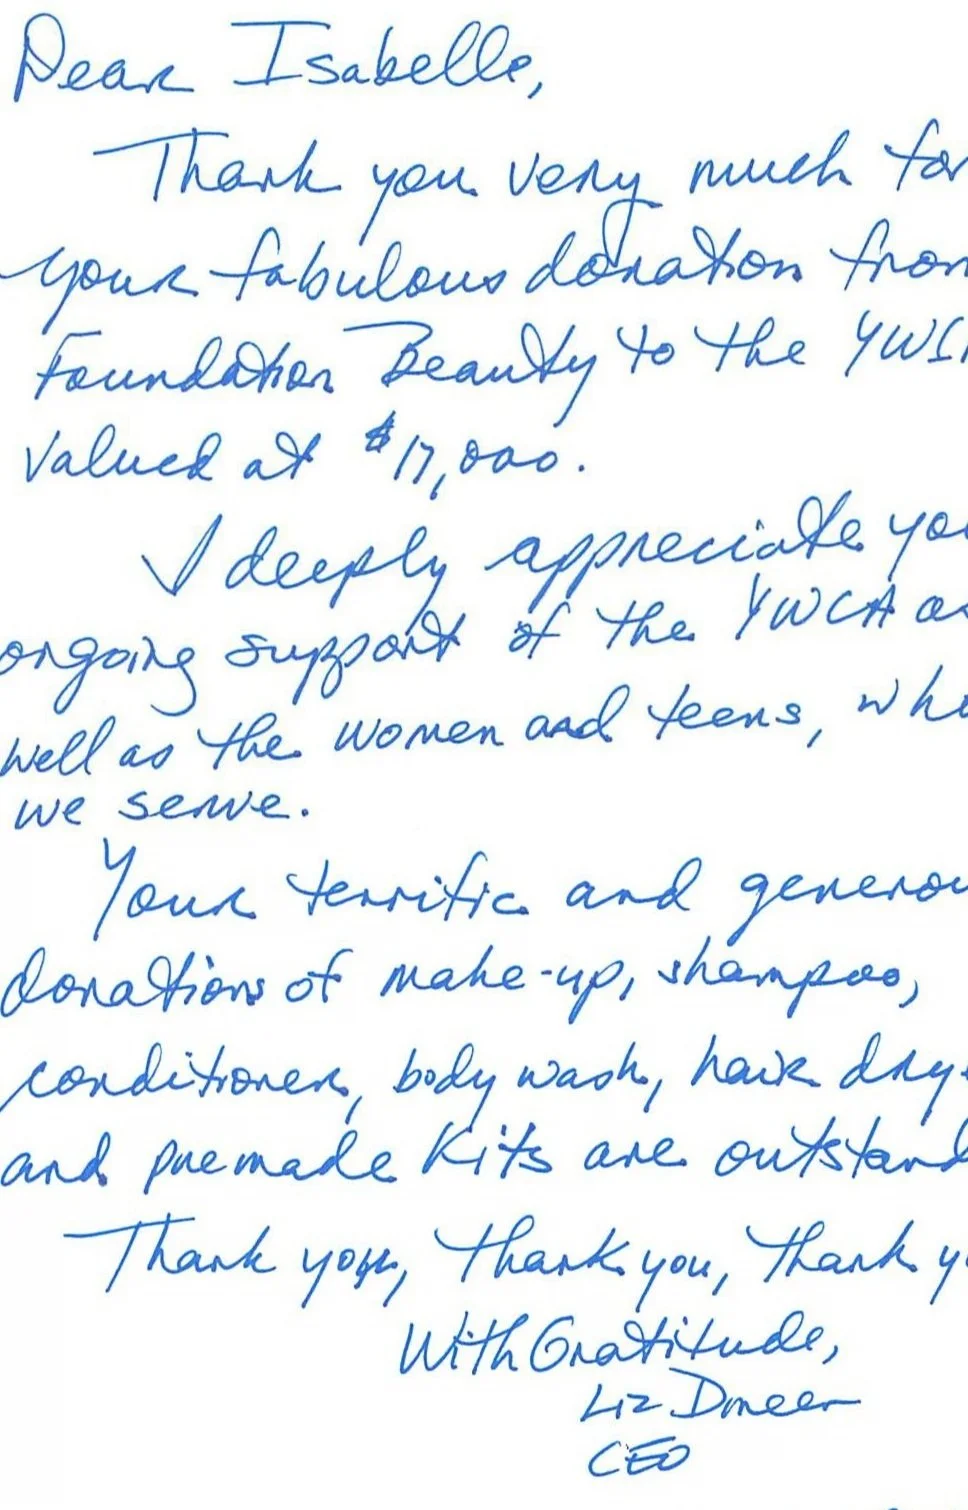 Dear Isabelle,
Thank you very much for
your fabulous donation from
Foundation Beauty to the YW
valued at $17,000.
I deeply appreciate you
ongoing support of the YWCA as
well as the women and teens, who
we serve.
Your terrific and generou
donations of make-up, shampoo,
conditioner, body wash, hair drye
and premade kits are outstand
Thank you, thank you, thank y
With Gratitude,
Liz
CEO